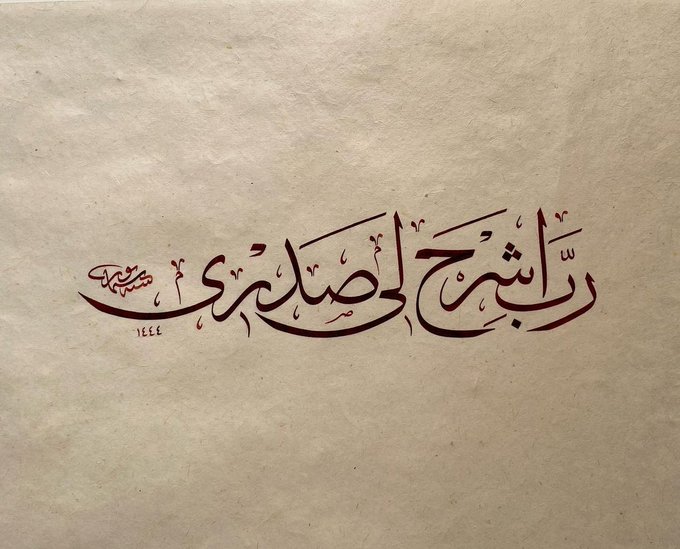 رَبِّ اشْرَحْ لى صَدْرى
١٤٤٤